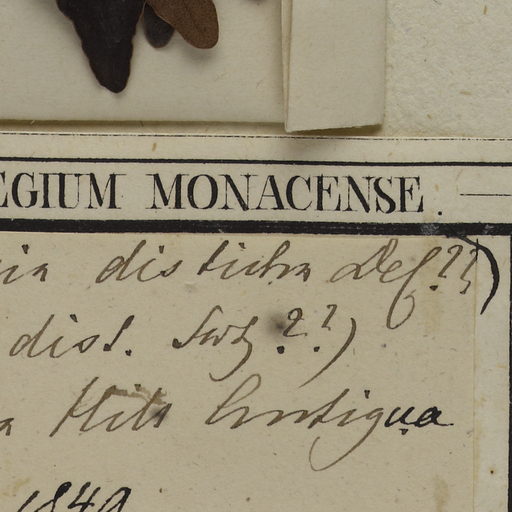 EGIUM MONACENSE.
ia disticha Def.??)
dist. Swtz.??)
a Hills Antigua
1849